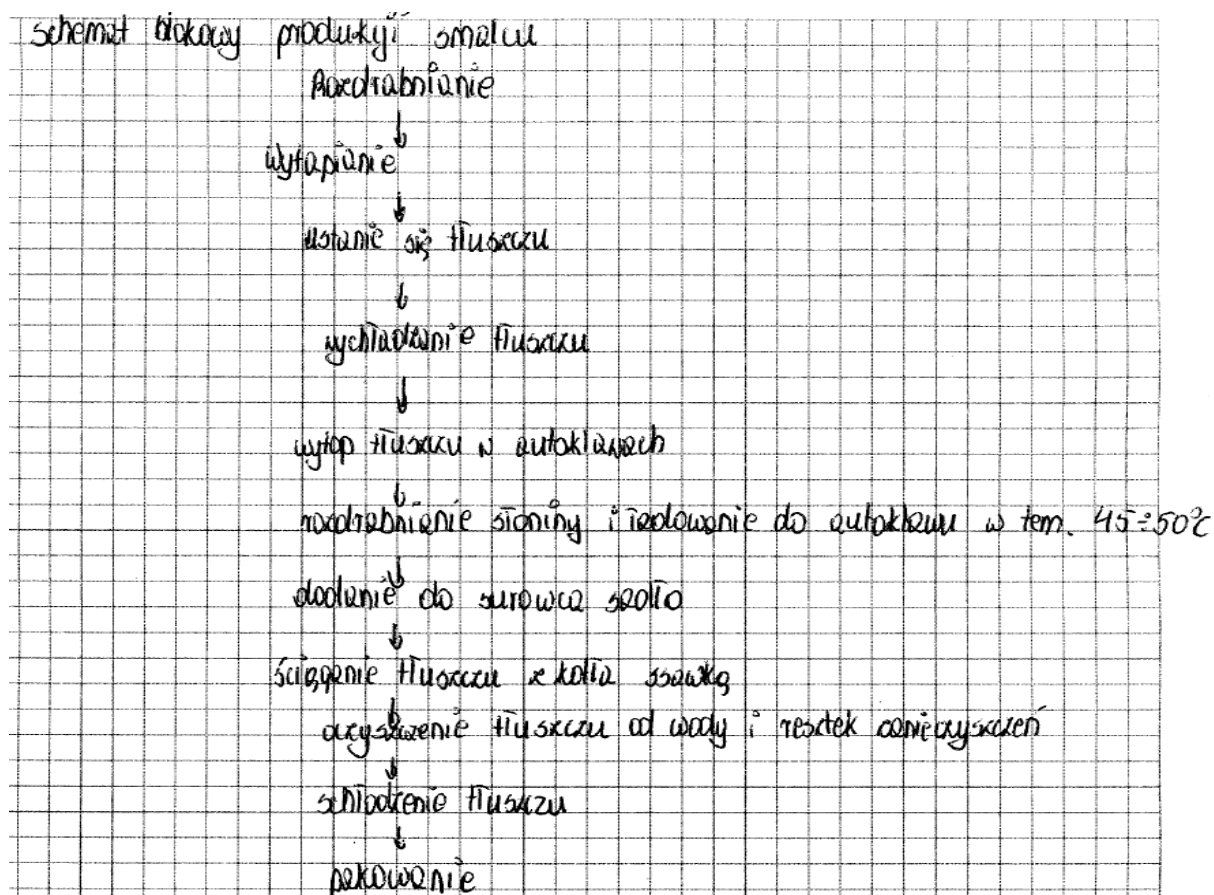 schemat blokowy produkcji smalcu
Rozdrabnianie
↓
wytapianie
↓
ustanie się tłuszczu
↓
wychładzanie tłuszczu
↓
wytop tłuszczu w autoklawach
↓
rozdrabnianie słoniny i ładowanie do autoklawu w tem. 45÷50°C
↓
dodanie do surowca sadło
↓
ściąganie tłuszczu z kotła ssawką
↓
oczyszczenie tłuszczu od wody i resztek zanieczyszczeń
↓
schłodzenie tłuszczu
↓
pakowanie